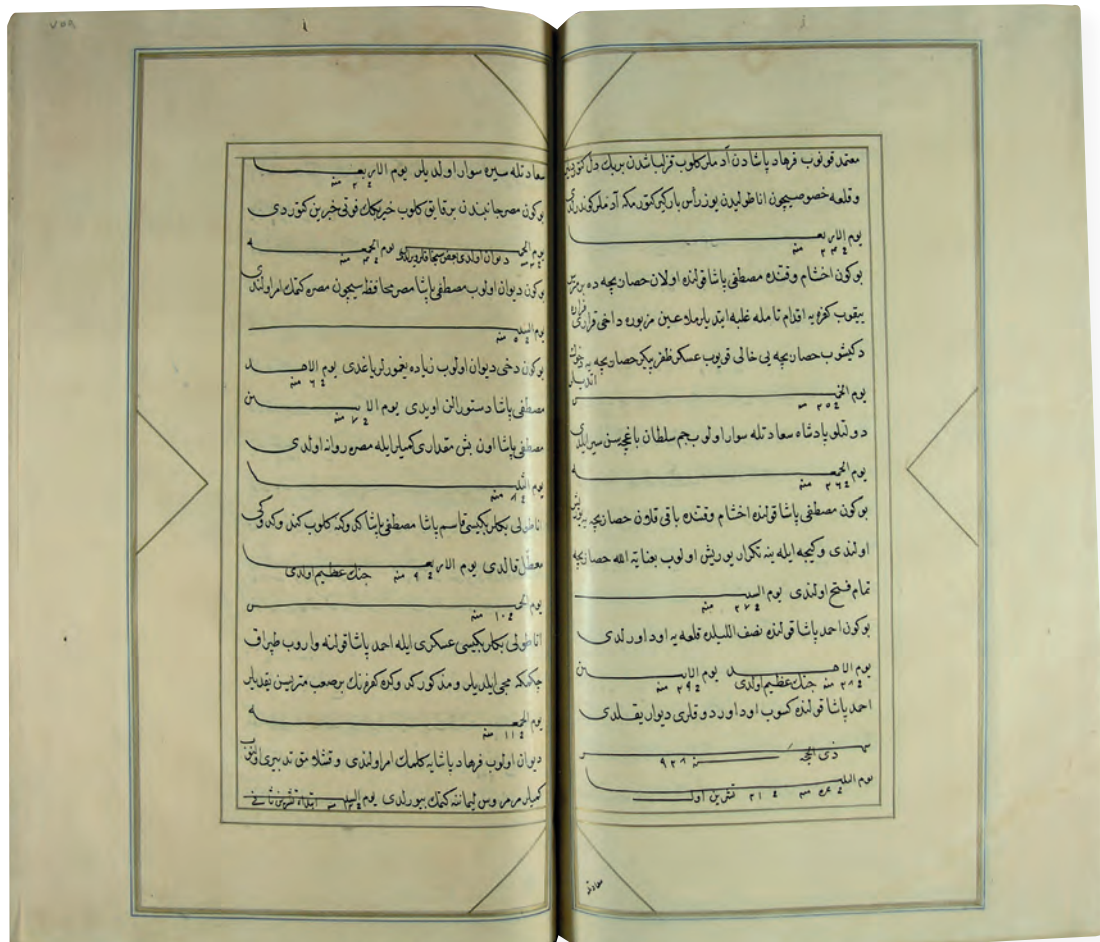 معتمد قونوب فرهاد پاشادن آدملر كلوب قزلباشدن بر بك دل كتوردیلر
و قلعه خصوصیچون اناطولیدن یوز رأس باركیر كتورمكه آدملر كوندرلدی
یوم الاربعـــه ٢٤ منه
بوكون اخشام وقتنده مصطفی پاشا قولنده اولان حصاربچه ده بر
ییقوب كفره یه اقدام تامله غلبه ایتدیلر ملاعین مزبوره داخی قراری فراره
دكیشوب حصاربچه یی خالی قویوب عسكر ظفر پیكر حصاربچه یه دخول ایتدیلر
یوم الخـــس ٢٥ منه
دولتلو پادشاه سعادتله سوار اولوب جم سلطان باغچه سن سیر ایلدی
یوم الجمعـــه ٢٦ منه
بوكون مصطفی پاشا قولنده اخشام وقتنده باقی قلان حصاربچه یه یوریش
اولندی و كیجه ایله ینه تكرار یوریش اولوب بعنایة الله حصاربچه
تمام فتح اولندی یوم السبـــ ٢٧ منه
بوكون احمد پاشا قولنده نصف اللیلده قلعه یه اود اورلدی
یوم الاحـــد ٢٨ منه جنك عظیم اولدی یوم الاثـــنین ٢٩ منه
احمد پاشا قولنده كسوب اود اوردوقلری دیوار یقلدی
ذی الحجه سنه ٩٢٨
یوم الثلثـــ منه ٢١ تشرین اول
سعادتله
٧٥٩
سعادتله سیره سوار اولدیلر یوم الاربعـــ ٢ منه
بوكون مصر جانبندن بر قایق كلوب خیر بكك فوتی خبرین كتوردی
یوم الخـــ ٣ منه دیوان اولدی بعض سنجاقلر ویرلدی یوم الجمعـــه ٤ منه
بوكون دیوان اولوب مصطفی پاشا مصر محافظه سیچون مصره كتمك امر اولندی
یوم السبـــ ٥ منه
بوكون دخی دیوان اولوب زیاده یغمورلر یاغدی یوم الاحـــد ٦ منه
مصطفی پاشا دستور الن اوپدی یوم الاثـــنین ٧ منه
مصطفی پاشا اون بش مقداری كمیلر ایله مصره روانه اولدی
یوم الثلثـــ ٨ منه
اناطولی بكلربكیسی قاسم پاشا مصطفی پاشا كدوكنه كلوب كندو كدوكی
معطل قالدی یوم الاربعـــ ٩ منه جنك عظیم اولدی
یوم الخـــس ١٠ منه
اناطولی بكلربكیسی عسكری ایله احمد پاشا قولنه واروب طپراق
چكمكه مجی ایلدیلر و مذكور كدوكده كفره نك بر صعب متریسن یقدیلر
یوم الجمعـــه ١١ منه
دیوان اولوب فرهاد پاشایه كلمك امر اولندی و قشلامق تدبیری اولنوب
كمیلر مرمروس لیماننه كتمك بیورلدی یوم السبـــ ١٢ منه ابتداء تشرین ثانی